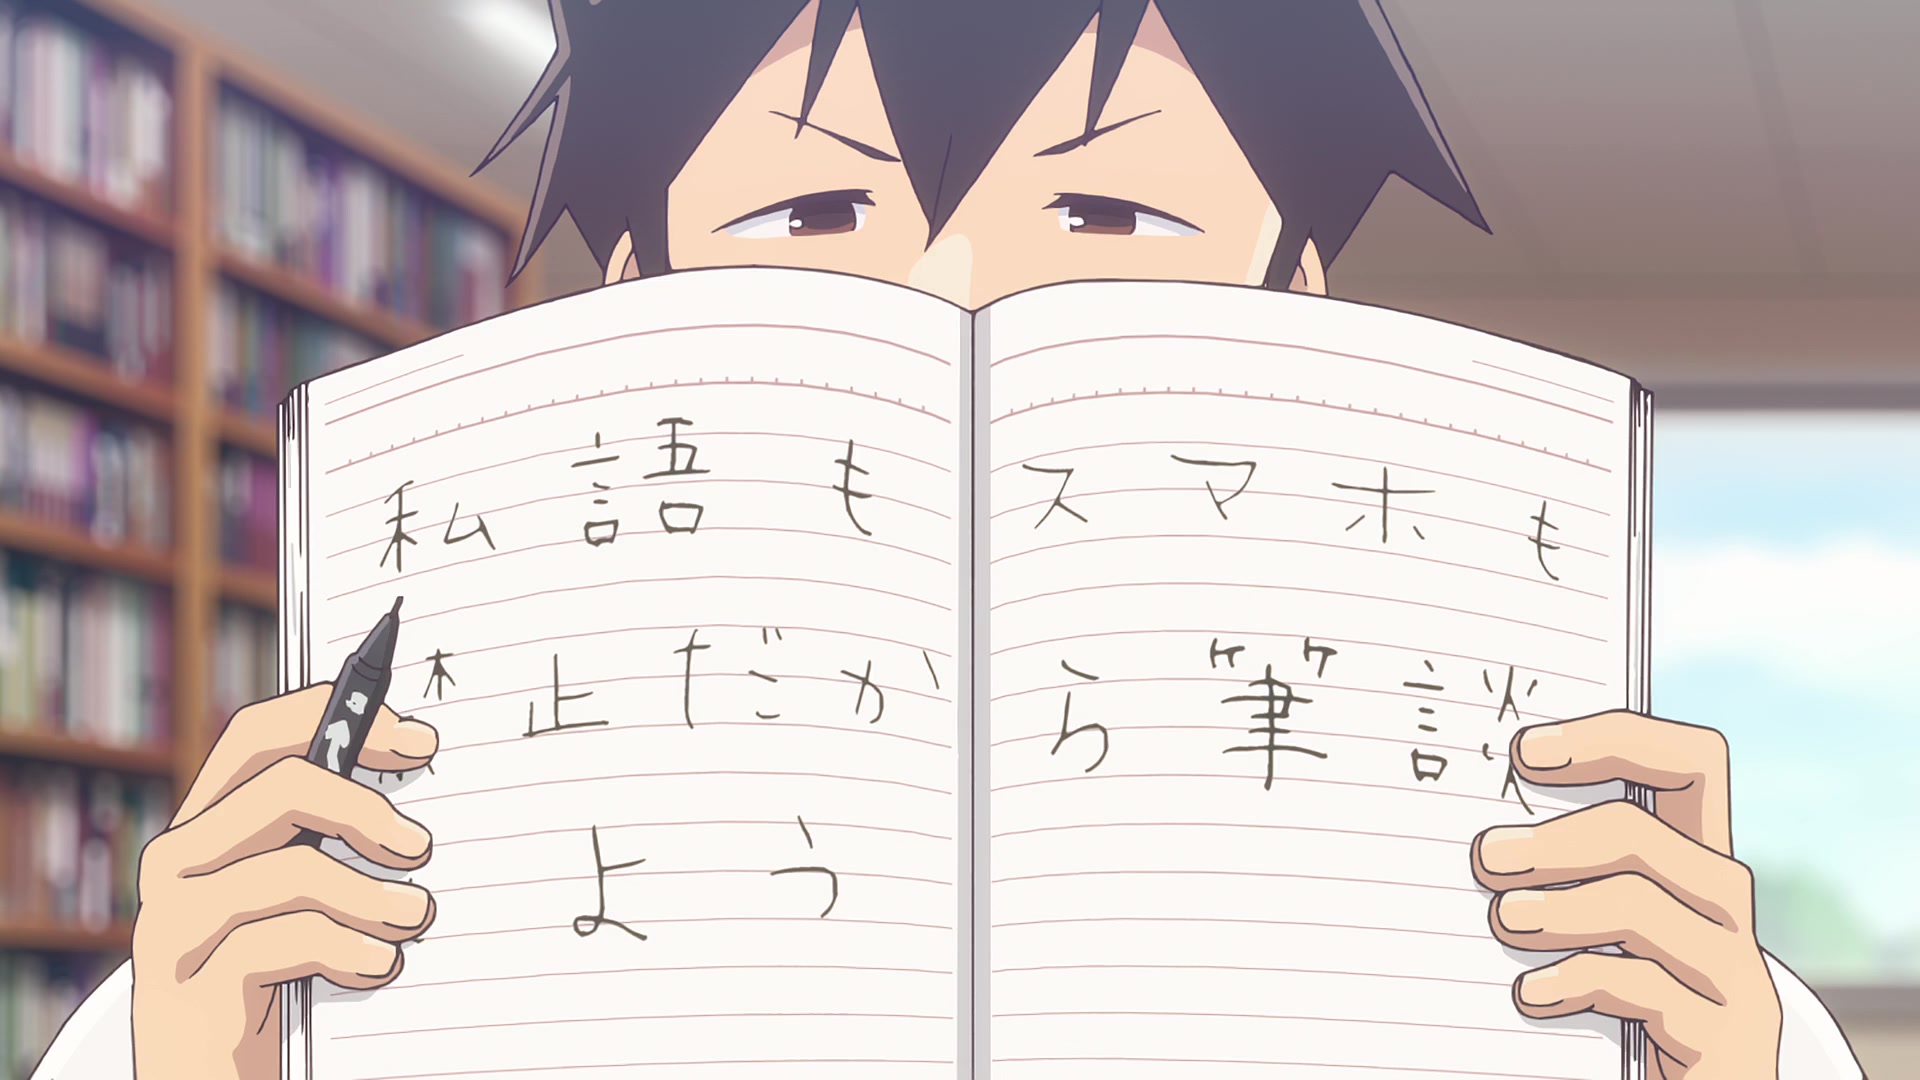 私語もスマホも
禁止だから筆談
よう